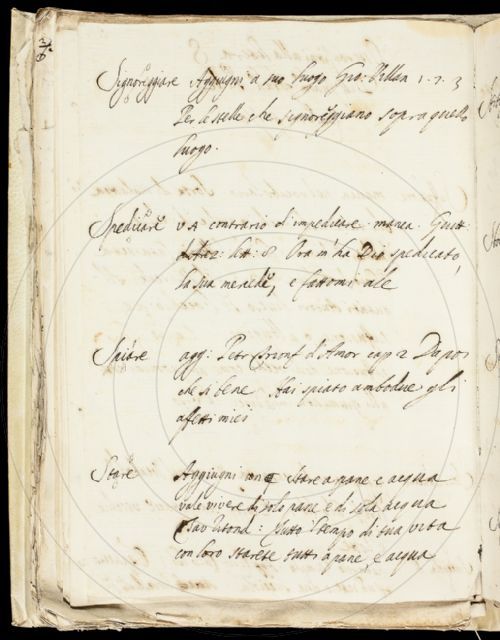 Signoreggiare Aggiugni a suo luogo Gio: Villan 1. 7. 3
Per le stelle che signoreggiano sopra quello
luogo.
Spedicare V A contrario di impedicare manca. Guitt:
lett: 8 Ora m'ha Dio spedicato,
la sua mercede, e fattomi ale
Spiare agg: Petr Trionf d'Amor cap 2 Da poi
che sì bene Hai spiato ambodue gli
affetti miei
Stare Aggiugni Stare a pane e acqua
vale vivere di solo pane e di sola acqua
Tutto 'l tempo di tua vita
con loro starete tutti a pane, e acqua